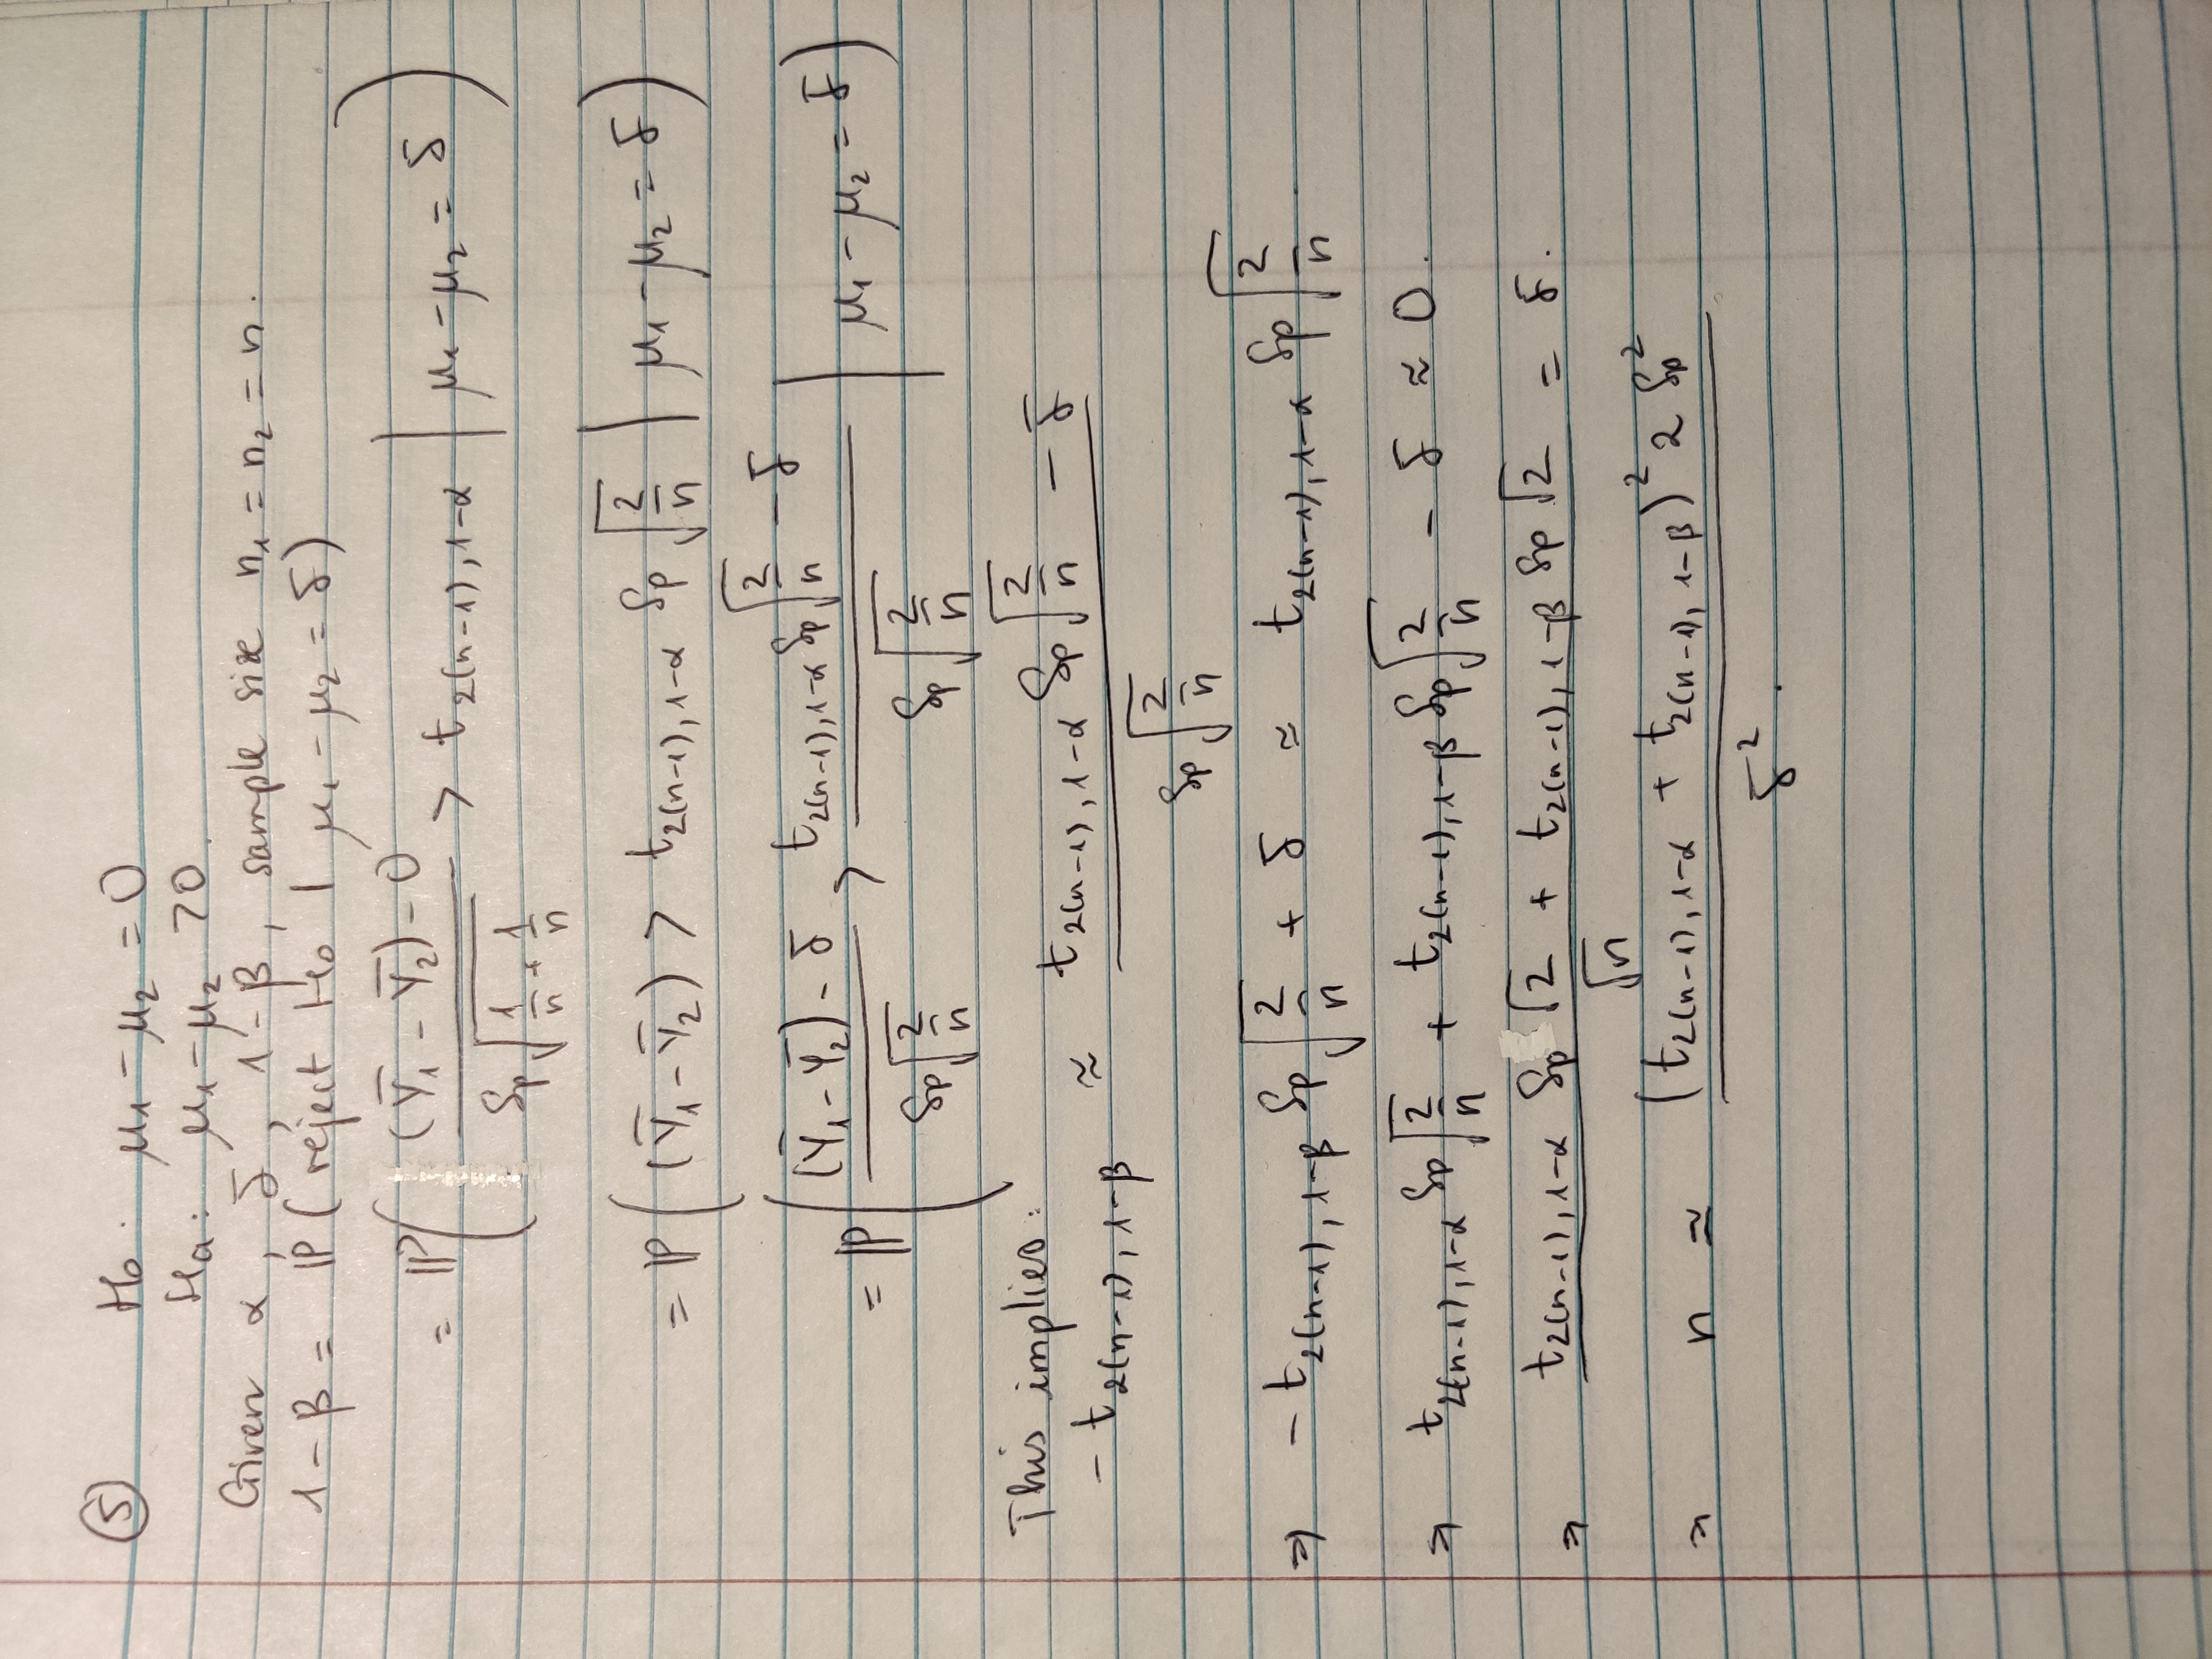 ⑤ H₀: μ₁ - μ₂ = 0
Ha: μ₁ - μ₂ > 0.
Given α, δ, 1-β, sample size n₁ = n₂ = n.
1-β = ℙ( reject H₀ | μ₁ - μ₂ = δ)
= ℙ( ((Ȳ₁ - Ȳ₂) - 0) / (Sp √(1/n + 1/n)) > t_{2(n-1), 1-α} | μ₁ - μ₂ = δ )
= ℙ( (Ȳ₁ - Ȳ₂) > t_{2(n-1), 1-α} Sp √(2/n) | μ₁ - μ₂ = δ )
= ℙ( ((Ȳ₁ - Ȳ₂) - δ) / (Sp √(2/n)) > (t_{2(n-1), 1-α} Sp √(2/n) - δ) / (Sp √(2/n)) | μ₁ - μ₂ = δ )
This implies:
- t_{2(n-1), 1-β} ≈ (t_{2(n-1), 1-α} Sp √(2/n) - δ) / (Sp √(2/n))
⇒ - t_{2(n-1), 1-β} Sp √(2/n) + δ ≈ t_{2(n-1), 1-α} Sp √(2/n).
⇒ t_{2(n-1), 1-α} Sp √(2/n) + t_{2(n-1), 1-β} Sp √(2/n) - δ ≈ 0.
⇒ (t_{2(n-1), 1-α} Sp √2 + t_{2(n-1), 1-β} Sp √2) / √n = δ.
⇒ n ≃ ((t_{2(n-1), 1-α} + t_{2(n-1), 1-β})² 2 Sp²) / δ².